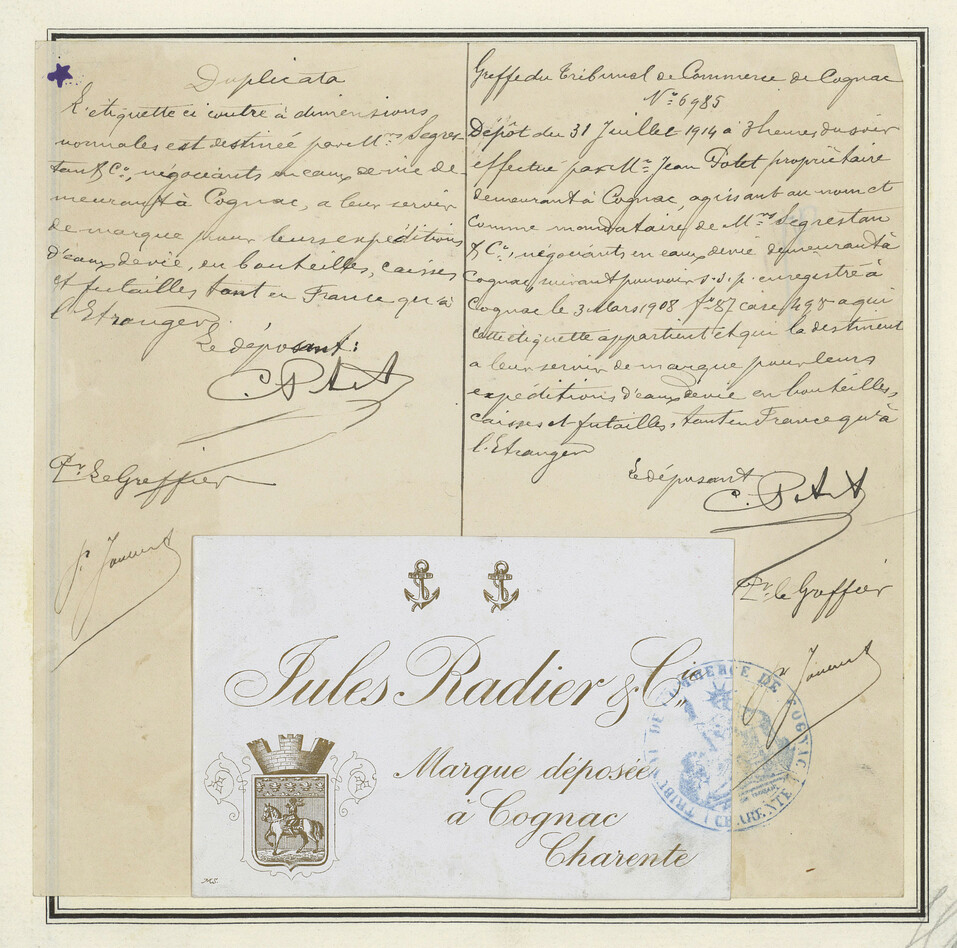 Duplicata
L'étiquette ci contre à dimensions
normales est destinée par Mrs Segres-
tan & Co, négociants en eaux de vie de-
meurant à Cognac, a leur servir
de marque pour leurs expéditions
d'eaux de vie, en bouteilles, caisses
et futailles tant en France qu'à
l'Etranger
Le déposant:
Pr Le Greffier
Greffe du Tribunal de Commerce de Cognac
No 6985
Dépôt du 31 Juillet 1914 à 3 heures du soir
effectué par Mr Jean Potet propriétaire
demeurant à Cognac, agissant au nom et
comme mandataire de Mrs Segrestan
& Co, négociants en eaux de vie demeurant à
Cognac, suivant pouvoir s. s. p. enregistré à
Cognac le 3 Mars 1908 fo 87 case 498 a qui
cette étiquette appartient et qui la destinent
a leur servir de marque pour leurs
expéditions d'eaux de vie en bouteilles,
caisses et futailles, tant en France qu'à
l'Etranger
Le déposant
Pr le Greffier
Jules Radier & Cie
Marque déposée
à Cognac
Charente
M.S.
TRIBUNAL DE COMMERCE DE COGNAC
(CHARENTE)